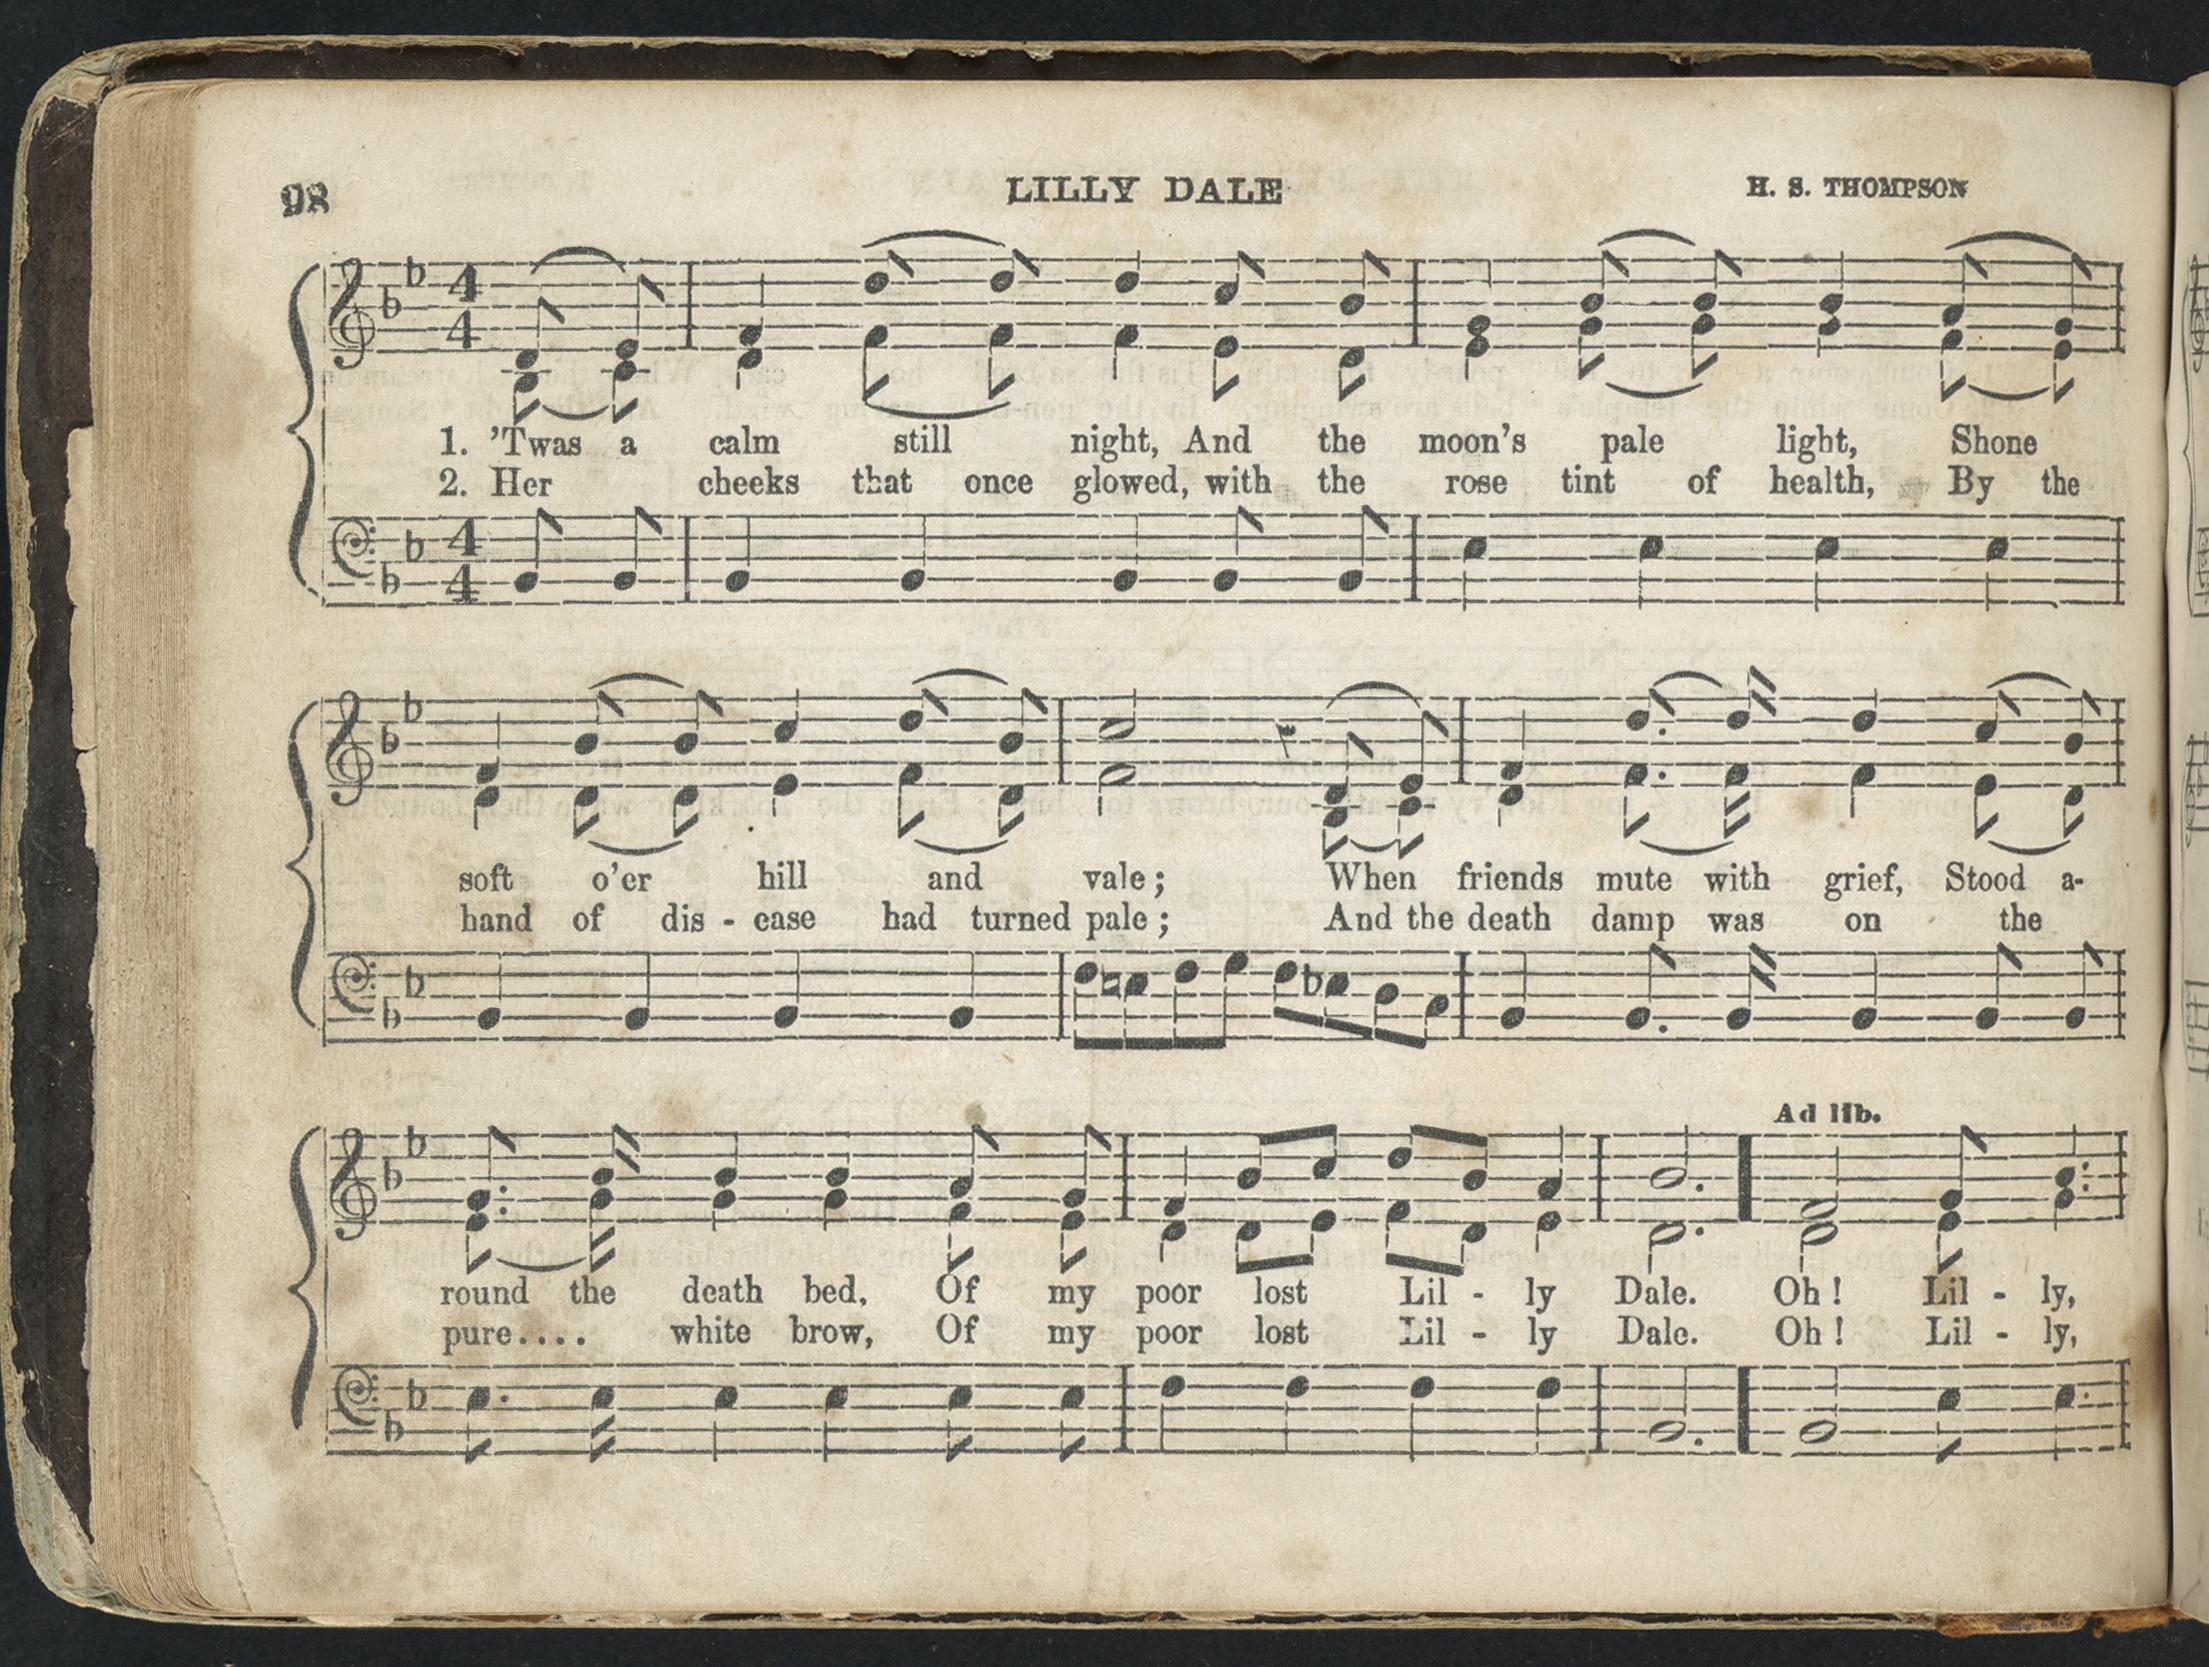 98
LILLY DALE
H. S. THOMPSON
4
4
1. 'Twas a calm still night, And the moon's pale light, Shone
2. Her cheeks that once glowed, with the rose tint of health, By the
4
4
soft o'er hill and vale; When friends mute with grief, Stood a-
hand of dis - ease had turned pale; And the death damp was on the
Ad lib.
round the death bed, Of my poor lost Lil - ly Dale. Oh! Lil - ly,
pure.... white brow, Of my poor lost Lil - ly Dale. Oh! Lil - ly,